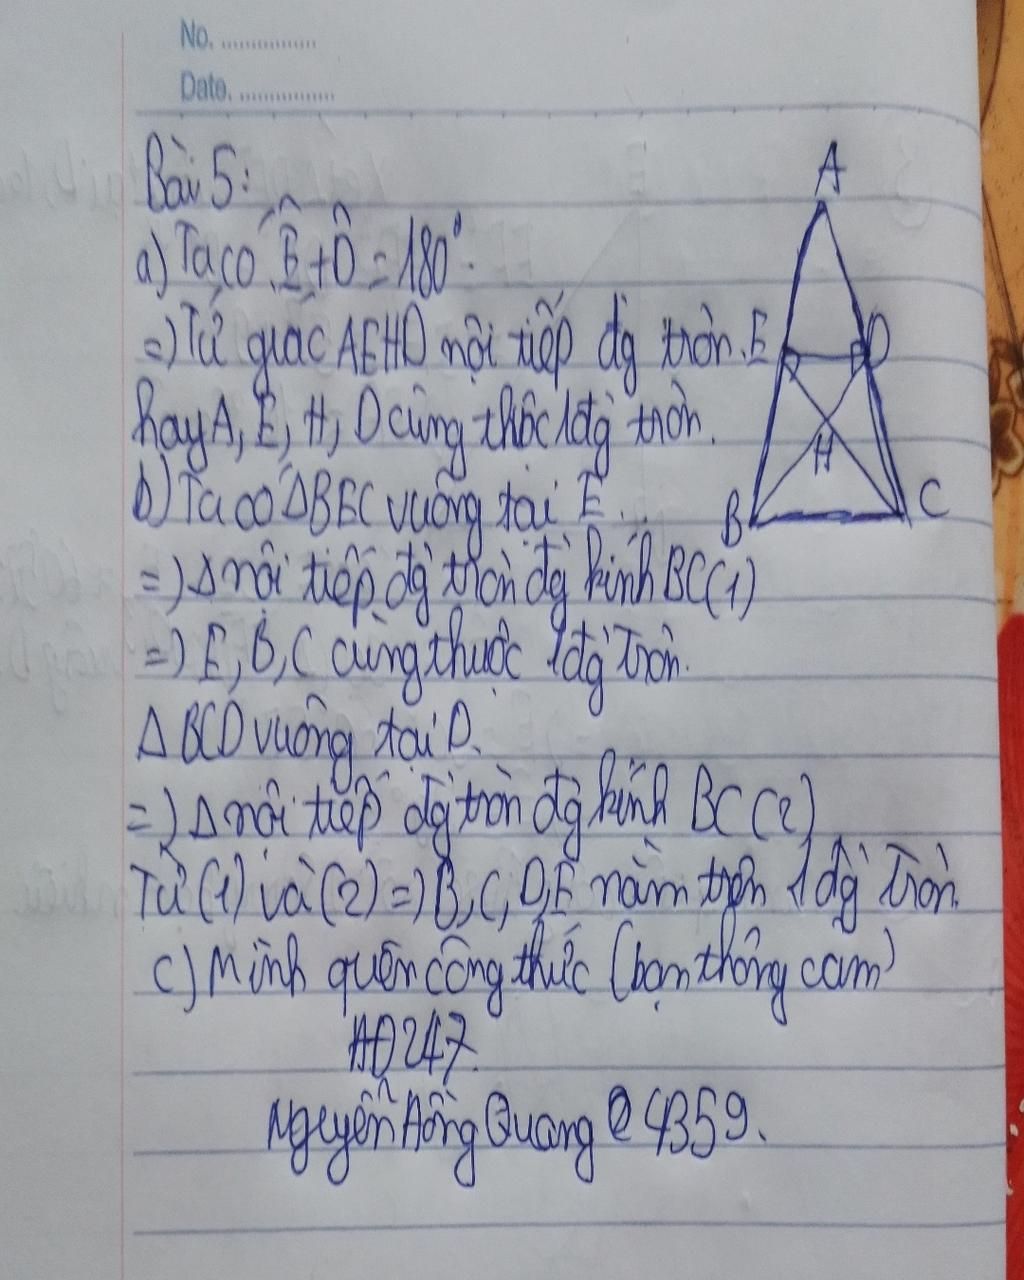 No. ...............
Date. ...............
Bài 5:
a) Ta có Ê + D̂ = 180°.
=) Tứ giác AEHD nội tiếp đg tròn.
hay A, E, H, D cùng thôc 1 đg tròn.
b) Ta có ΔBEC vuông tại E.
=) Δ nội tiếp đg tròn đg kính BC (1)
=) E, B, C cùng thuộc 1 đg tròn.
Δ BCD vuông tại D.
=) Δ nội tiếp đg tròn đg kính BC (2)
Từ (1) và (2) =) B, C, D, E nằm trọn 1 đg tròn.
c) Mình quên công thức (bạn thông cảm)
HĐ247.
Nguyễn Hồng Quang @ 4359.
A
E
D
H
B
C